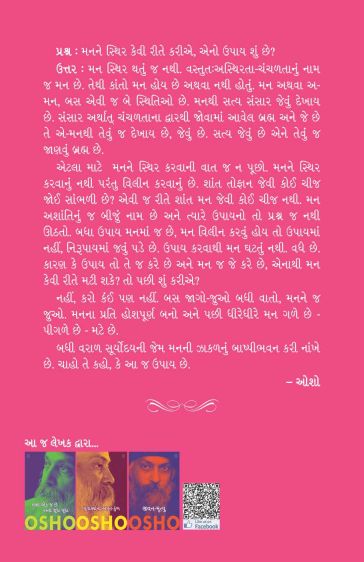 પ્રશ્ન : મનને સ્થિર કેવી રીતે કરીએ, એનો ઉપાય શું છે?
ઉત્તર : મન સ્થિર થતું જ નથી. વસ્તુત:અસ્થિરતા-ચંચળતાનું નામ
જ મન છે. તેથી કાંતો મન હોય છે અથવા નથી હોતું. મન અથવા અ-
મન, બસ એવી જ બે સ્થિતિઓ છે. મનથી સત્ય સંસાર જેવું દેખાય
છે. સંસાર અર્થાત્ ચંચળતાના દ્વારથી જોવામાં આવેલ બ્રહ્મ અને જે છે
તે અ-મનથી તેવું જ દેખાય છે, જેવું છે. સત્ય જેવું છે એને તેવું જ
જાણવું બ્રહ્મ છે.
એટલા માટે મનને સ્થિર કરવાની વાત જ ન પૂછો. મનને સ્થિર
કરવાનું નથી પરંતુ વિલીન કરવાનું છે. શાંત તોફાન જેવી કોઈ ચીજ
જોઈ સાંભળી છે? એવી જ રીતે શાંત મન જેવી કોઈ ચીજ નથી. મન
અશાંતિનું જ બીજું નામ છે અને ત્યારે ઉપાયનો તો પ્રશ્ન જ નથી
ઊઠતો. બધા ઉપાય મનમાં જ છે. મન વિલીન કરવું હોય તો ઉપાયમાં
નહીં, નિરૂપાયમાં જવું પડે છે. ઉપાય કરવાથી મન ઘટતું નથી. વધે છે.
કારણ કે ઉપાય તો તે જ કરે છે અને મન જ જે કરે છે, એનાથી મન
કેવી રીતે મટી શકે? તો પછી શું કરીએ?
નહીં, કરો કંઈ પણ નહીં. બસ જાગો-જુઓ બધી વાતો, મનને જ
જુઓ. મનના પ્રતિ હોશપૂર્ણ બનો અને પછી ધીરેધીરે મન ગળે છે -
પીગળે છે - મટે છે.
બધી વરાળ સૂર્યોદયની જેમ મનની ઝાકળનું બાષ્પીભવન કરી નાંખે
છે. ચાહો તે કહો, કે આ જ ઉપાય છે.
– ઓશો
આ જ લેખક દ્વારા...
જીવન-મૃત્યુ
OSHO OSHO OSHO
Facebook